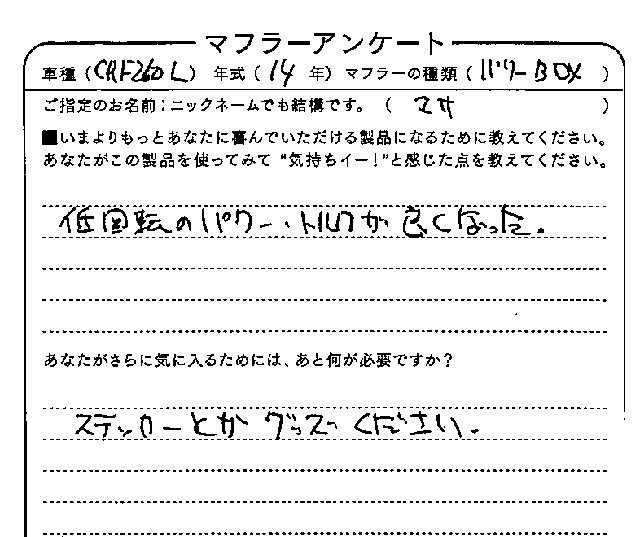 マフラーアンケート
車種（CRF260L）年式（14 年）マフラーの種類（パワーBOX）
ご指定のお名前：ニックネームでも結構です。（ ）
■いまよりもっとあなたに喜んでいただける製品になるために教えてください。
あなたがこの製品を使ってみて“気持ちイー！”と感じた点を教えてください。
低回転のパワー・トルクが良くなった。
あなたがさらに気に入るためには、あと何が必要ですか？
ステッカーとかグッズください。